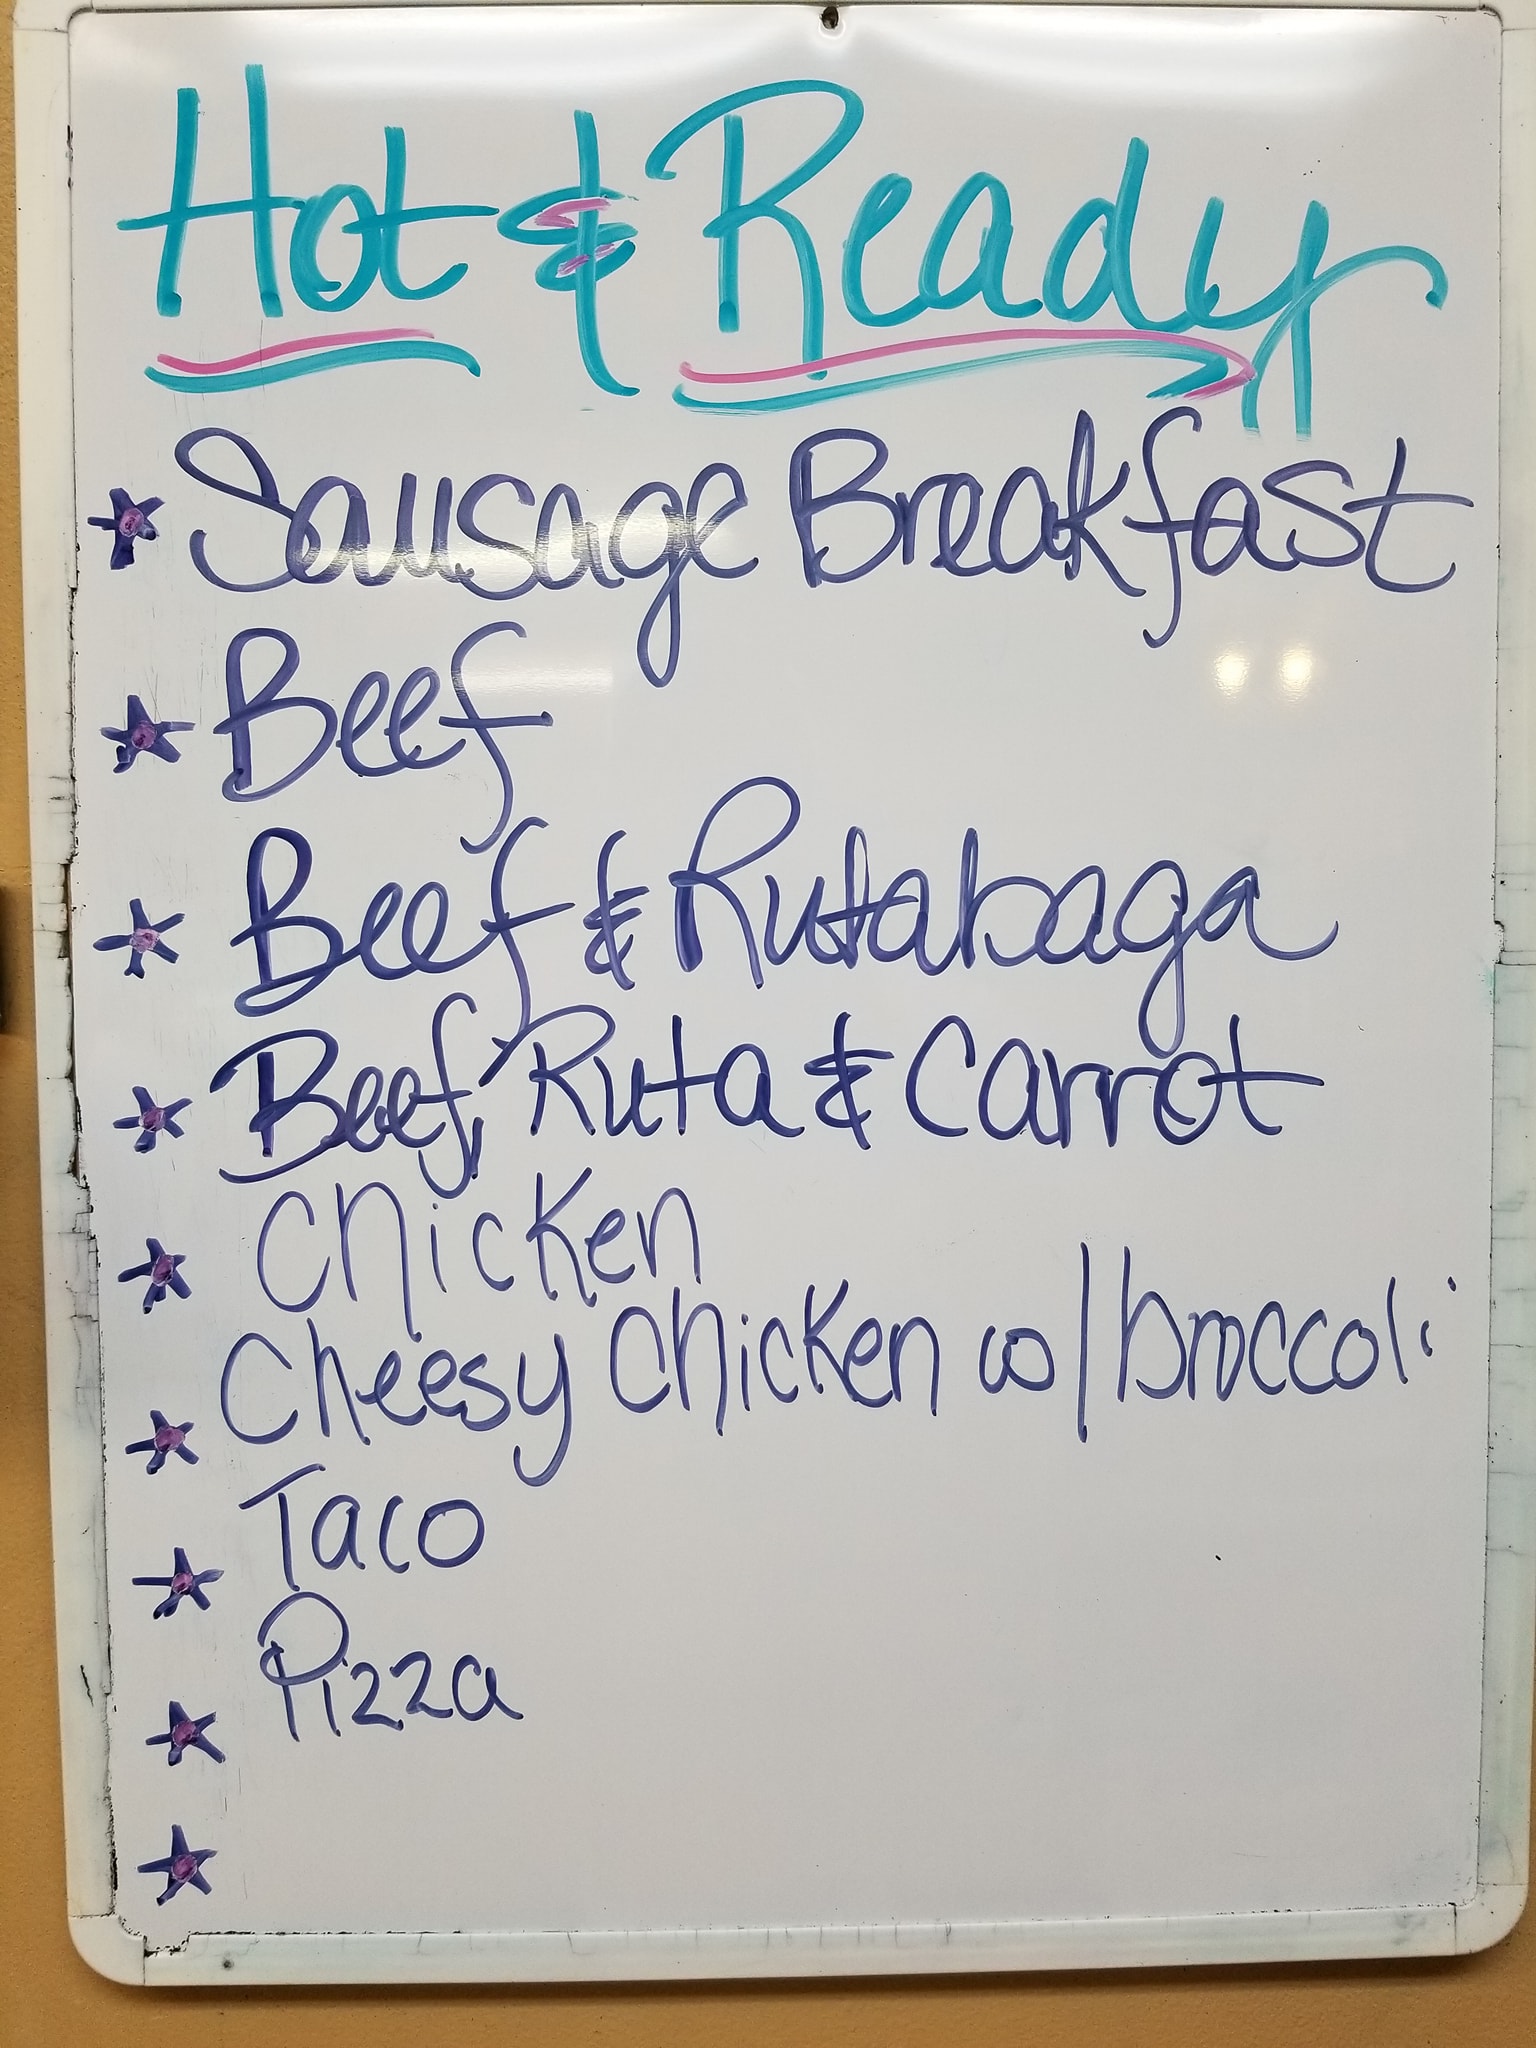 Hot & Ready
Sausage Breakfast
Beef
Beef & Rutabaga
Beef, Ruta & Carrot
Chicken
Cheesy Chicken w/broccoli
Taco
Pizza